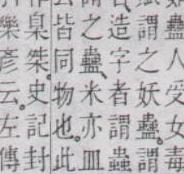 蠱人受女毒
謂之妖蠱。
造字者謂蟲
之蠱、米亦皿
皆同物也。此
梟桀。史記封
樂彦云。左傳